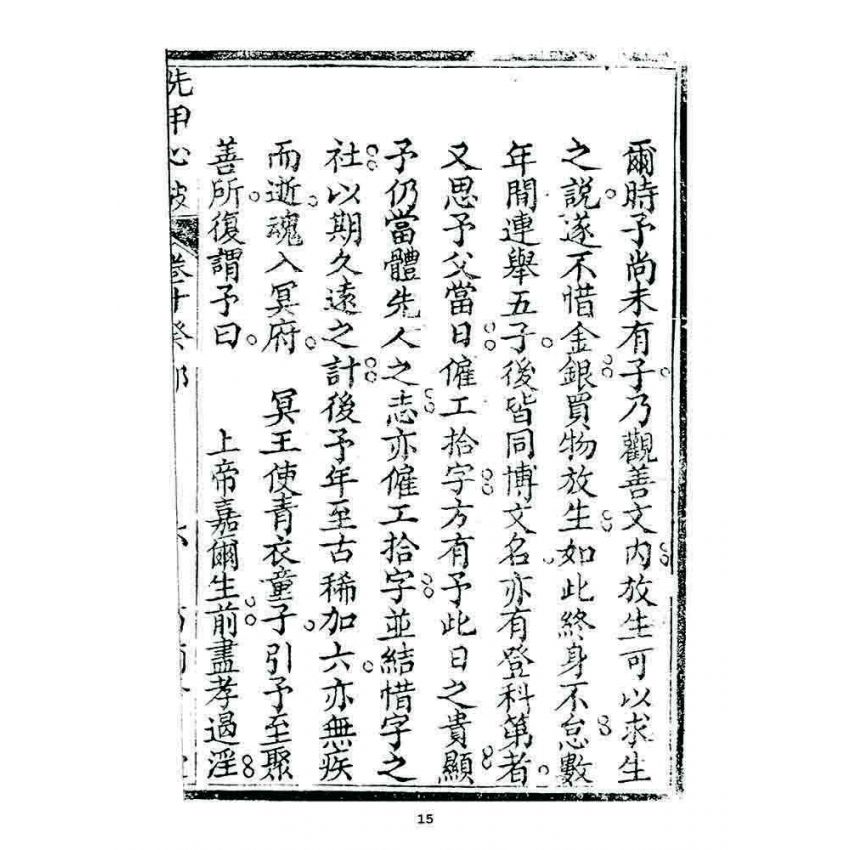 爾時予尚未有子乃觀善文內放生可以求生
之說遂不惜金銀買物放生如此終身不怠數
年間連舉五子後皆同博文名亦有登科第者
又思予父當日僱工拾字方有予此日之貴顯
予仍當體先人之志亦僱工拾字並結惜字之
社以期久遠之計後予年至古稀加六亦無疾
而逝魂入冥府 冥王使青衣童子引予至聚
善所復謂予曰 上帝嘉爾生前盡孝遏淫
心 卷十癸
15